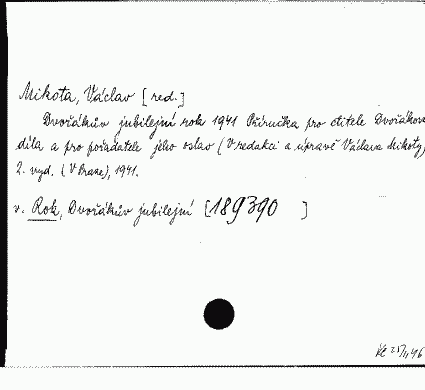 Mikota, Václav [red.]
Dvořákův jubilejní rok 1941 Příručka pro ctitele Dvořákova
díla a pro pořadatele jeho oslav (V redakci a úpravě Václava Mikoty)
2. vyd. (V Praze), 1941.
v. Rok, Dvořákův jubilejní [189390 ]